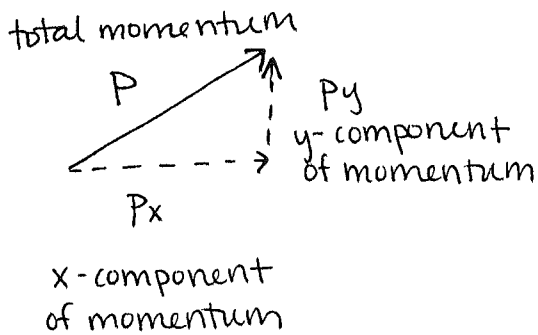 total momentum
P
Py
y-component
of momentum
Px
x-component
of momentum